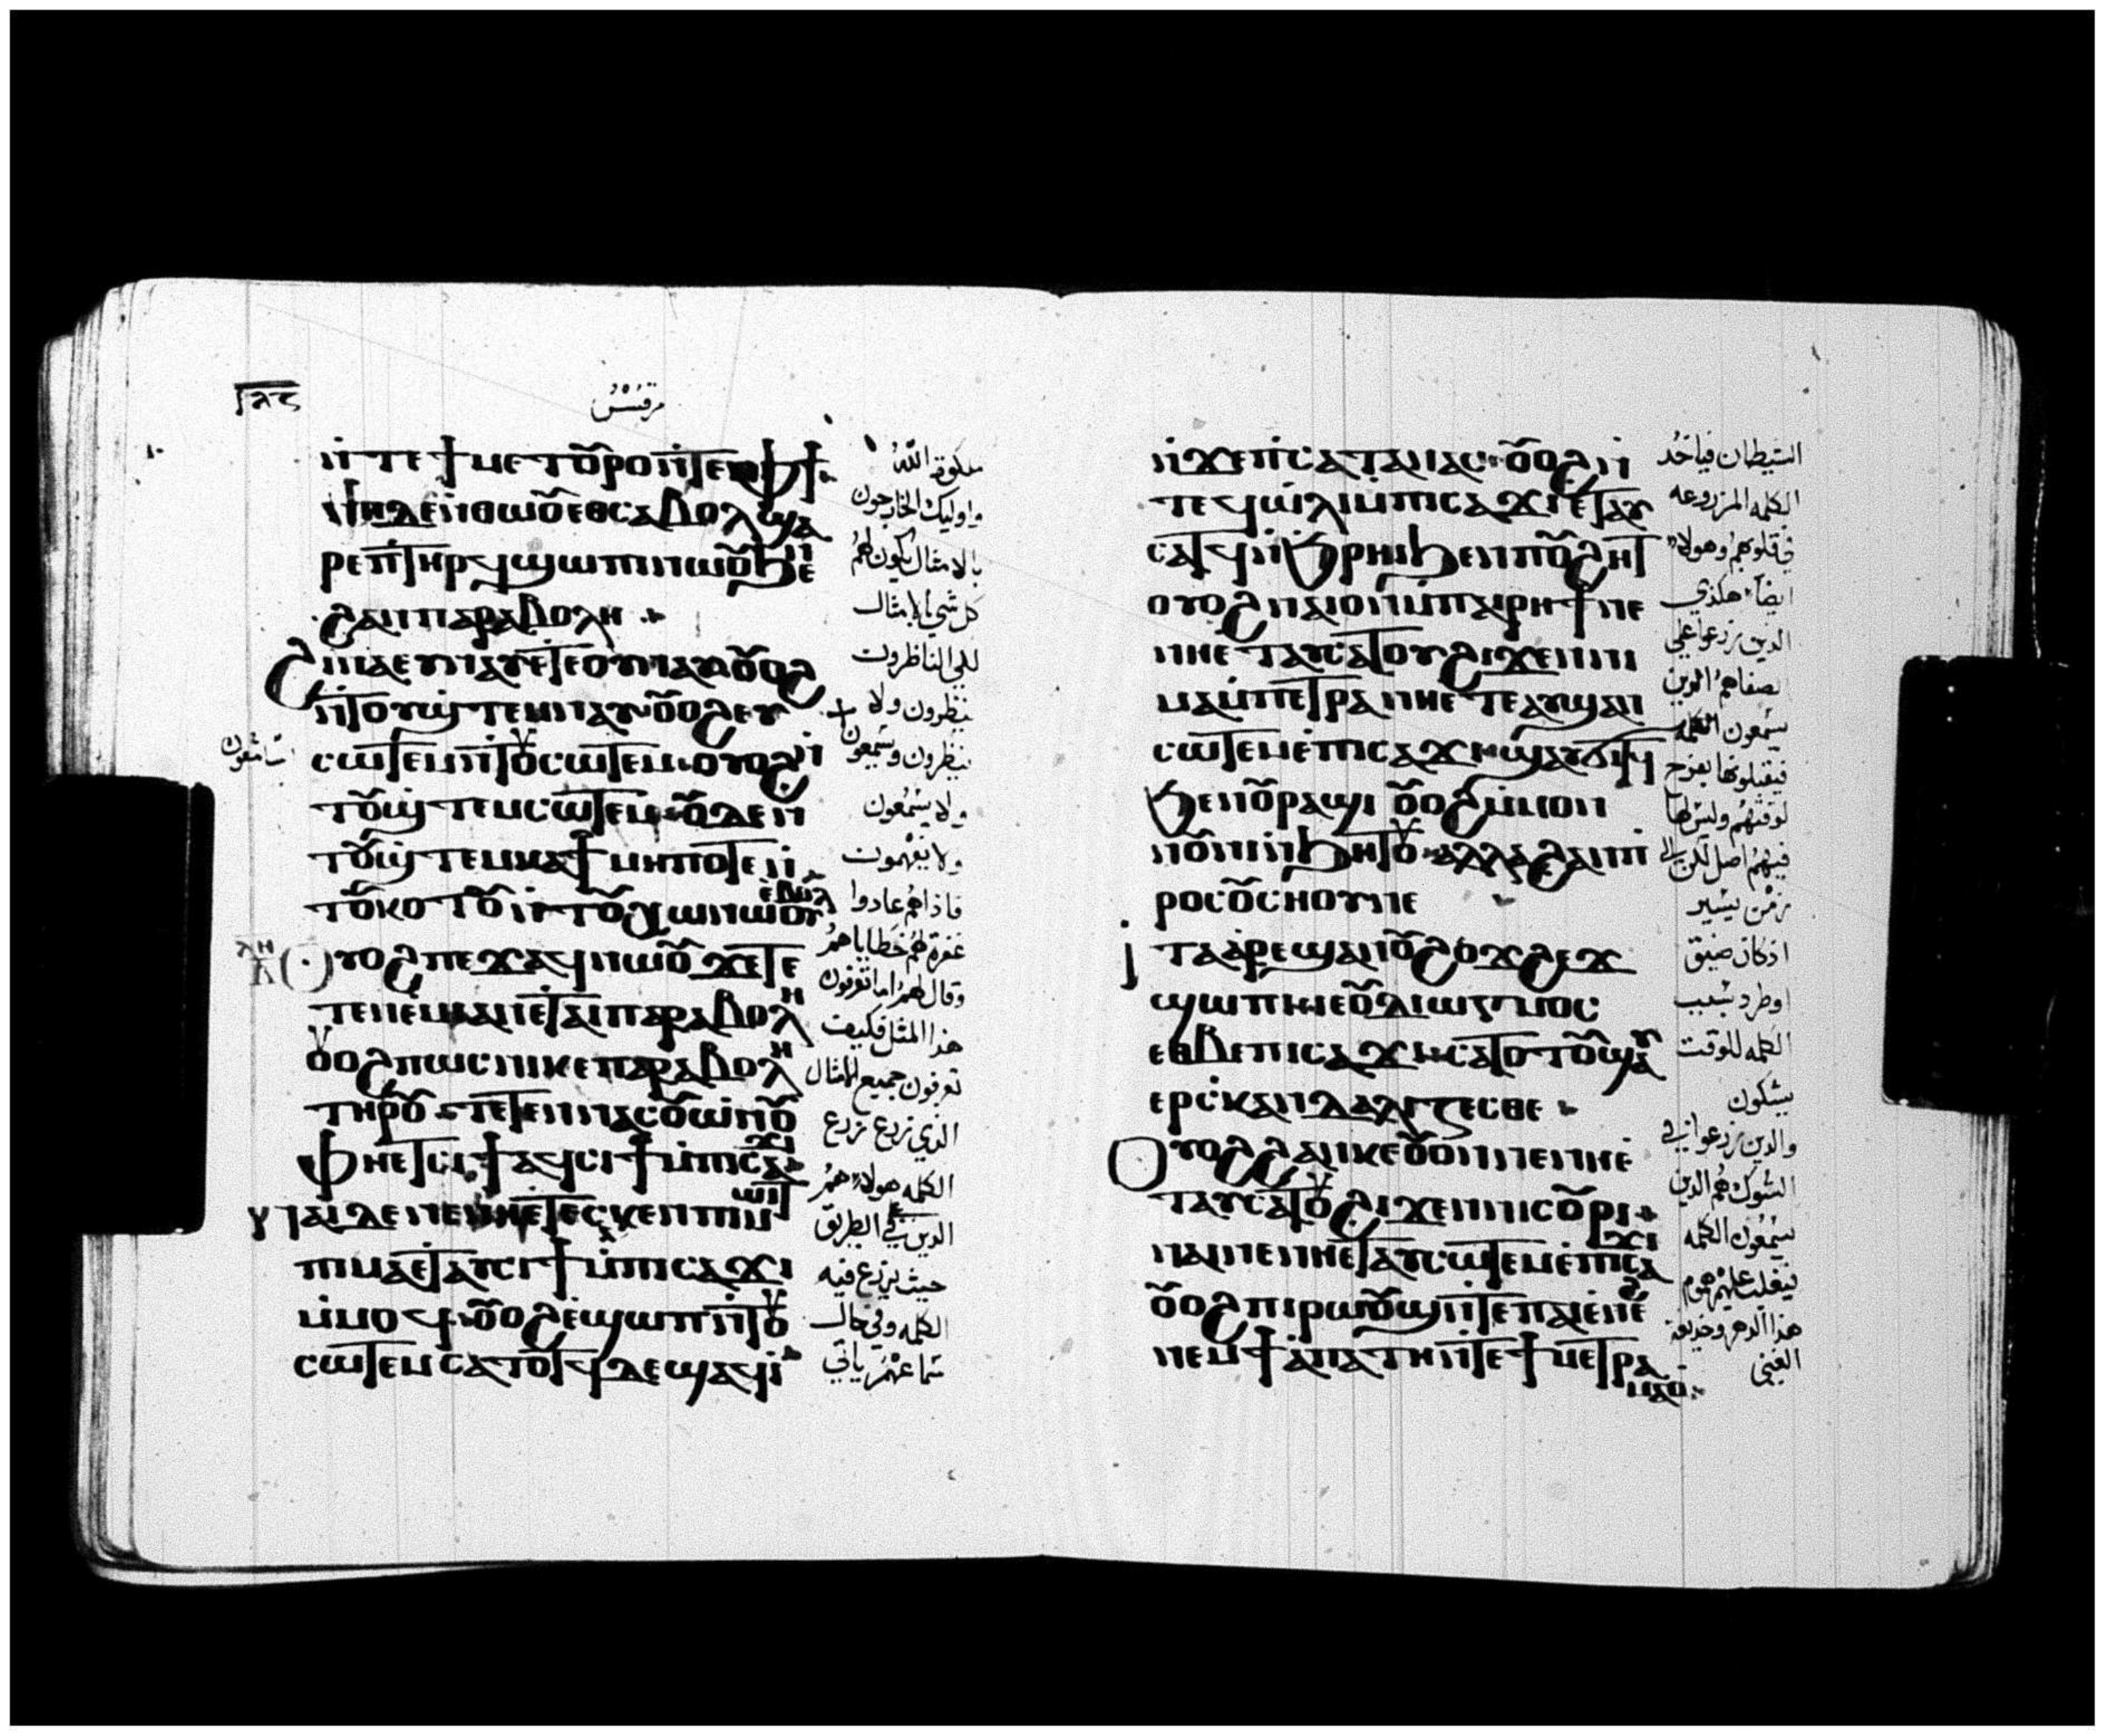 مرقس
ⲛ̀ⲧⲉϯⲙⲉⲧⲟⲩⲣⲟ ⲛ̀ⲧⲉⲫϯ
ⲛⲏ ⲇⲉ ⲛ̀ⲑⲱⲟⲩ ⲉⲑⲥⲁⲃⲟⲗ ϣⲁ
ⲣⲉ ⲡ̀ⲧⲏⲣϥ ϣⲱⲡⲓ ⲛⲱⲟⲩ ϧⲉⲛ
ϩⲁⲛⲡⲁⲣⲁⲃⲟⲗⲏ
ϩⲓⲛⲁ ⲉⲩⲛⲁⲩ ⲉⲧⲉⲟⲩⲛⲁⲩ ⲟⲩⲟϩ
ⲛ̀ⲧⲟⲩϣ̀ⲧⲉⲙⲛⲁⲩ ⲟⲩⲟϩ ⲉⲩ
ⲥⲱⲧⲉⲙ ⲛ̀ⲧⲟⲩⲥⲱⲧⲉⲙ ⲟⲩⲟϩ ⲛ̀
ⲧⲟⲩϣ̀ⲧⲉⲙⲥⲱⲧⲉⲙ ⲟⲩⲇⲉ ⲛ̀
ⲧⲟⲩϣ̀ⲧⲉⲙⲕⲁϯ ⲙⲏⲡⲟⲧⲉ ⲛ̀
ⲧⲟⲩⲕⲟⲧⲟⲩ ⲛ̀ⲧⲟⲩⲭⲱ ⲛⲱⲟⲩ ⲉ̀ⲃⲟⲗ
ⲗⲏ
ⲟⲩⲟϩ ⲡⲉϫⲁϥ ⲛⲱⲟⲩ ϫⲉ ⲧⲉ
ⲧⲉⲛⲉ̀ⲙⲓ ⲁⲛ ⲉ̀ⲧⲁⲓⲡⲁⲣⲁⲃⲟⲗⲏ
ⲟⲩⲟϩ ⲡⲱⲥ ⲛⲓⲕⲉⲡⲁⲣⲁⲃⲟⲗⲏ
ⲧⲏⲣⲟⲩ ⲧⲉⲧⲉⲛⲛⲁⲥⲟⲩⲱⲛⲟⲩ
ⲫⲏ ⲉⲧⲥⲓϯ ⲁϥⲥⲓϯ ⲙ̀ⲡⲓⲥⲁϫⲓ
ⲛⲁⲓ ⲇⲉ ⲛⲉ ⲛⲏ ⲉⲧⲉⲥⲕⲉⲛ ⲡⲓⲙⲱⲓⲧ
ⲡⲓⲙⲁ ⲉ̀ⲧⲁⲩⲥⲓϯ ⲙ̀ⲡⲓⲥⲁϫⲓ
ⲙ̀ⲙⲟϥ ⲟⲩⲟϩ ⲉ̀ϣⲱⲡ ⲛ̀ⲧⲟⲩ
ⲥⲱⲧⲉⲙ ⲥⲁⲧⲟⲧϥ ⲇⲉ ϣⲁϥⲓ̀
ملكوت الله
واوليك الخارجون
بالامثال يكون لهم
كل شي بالامثال
لكي الناظرون
ينظرون ولا
ينظرون ويسمعون
ولا يسمعون
ولا يفهمون
فاذا هم عادوا
غفرة لهم خطاياهم
وقال لهم اما تعرفون
هذا المثل فكيف
تعرفون جميع الامثال
الذي زرع زرع
الكلمه هولاء هم
الذين على الطريق
حيث يزرع فيه
الكلمه وفي حال
سماعهم ياتي
ⲛ̀ϫⲉ ⲡ̀ⲥⲁⲧⲁⲛⲁⲥ ⲟⲩⲟϩ ⲛ̀
ⲧⲉϥⲱ̀ⲗⲓ ⲙ̀ⲡⲓⲥⲁϫⲓ ⲉ̀ⲧⲁⲩ
ⲥⲁⲧϥ ⲛ̀ϧⲣⲏⲓ ϧⲉⲛ ⲡⲟⲩϩⲏⲧ
ⲟⲩⲟϩ ⲛⲁⲓ ⲟⲛ ⲙ̀ⲡⲁⲓⲣⲏϯ ⲛⲉ
ⲛⲏ ⲉⲧⲁⲩⲥⲁⲧⲟⲩ ϩⲓϫⲉⲛ ⲛⲓ
ⲙⲁⲙ̀ⲡⲉⲧⲣⲁ ⲛⲏ ⲉⲧⲉ ⲁⲩϣⲁⲛ
ⲥⲱⲧⲉⲙ ⲉ̀ⲡⲓⲥⲁϫⲓ ϣⲁⲩϭⲓⲧϥ
ϧⲉⲛ ⲟⲩⲣⲁϣⲓ ⲟⲩⲟϩ ⲙ̀ⲙⲟⲛ
ⲛⲟⲩⲛⲓ ⲛ̀ϧⲏⲧⲟⲩ ⲁⲗⲗⲁ ϩⲁⲛⲡ̀
ⲣⲟⲥⲟⲩⲥⲛⲟⲩ ⲛⲉ
ⲓⲧⲁ ⲁⲣⲉϣⲁⲛ ⲟⲩϩⲟϫϩⲉϫ
ϣⲱⲡⲓ ⲓⲉ ⲟⲩⲇⲓⲱⲅⲙⲟⲥ
ⲉⲑⲃⲉ ⲡⲓⲥⲁϫⲓ ⲥⲁⲧⲟⲧⲟⲩ ϣⲁⲩ
ⲉⲣⲥ̀ⲕⲁⲛⲇⲁⲗⲓⲍⲉⲥⲑⲉ
ⲟⲩⲟϩ ϩⲁⲛⲕⲉⲟⲩⲟⲛ ⲛⲉ ⲛⲏ ⲉ̀
ⲧⲁⲩⲥⲁⲧⲟⲩ ϩⲓϫⲉⲛ ⲛⲓⲥⲟⲩⲣⲓ
ⲛⲁⲓ ⲛⲉ ⲛⲏ ⲉⲧⲁⲩⲥⲱⲧⲉⲙ ⲉ̀ⲡⲓⲥⲁϫⲓ
ⲟⲩⲟϩ ⲡⲓⲣⲱⲟⲩϣ ⲛ̀ⲧⲉ ⲡⲁⲓⲉ̀ⲛⲉϩ
ⲛⲉⲙ ϯⲁ̀ⲡⲁⲧⲏ ⲛ̀ⲧⲉ ϯⲙⲉⲧⲣⲁ
ⲙⲁⲟ̀
الشيطان فياخد
الكلمه المزروعه
في قلوبهم وهولاء
ايضا هكذي
الذين زرعوا على
الصفاهم الذين
يسمعون الكلمه
فيقبلونها بفرح
لوقتهم وليس لها
فيهم اصل لكن الي
زمن يسير
اذ كان ضيق
او طرد بسبب
الكلمه للوقت
يشكون
والذين زرعوا في
الشوك هم الذين
يسمعون الكلمه
فيغلب عليهم هموم
هذا الدهر وخديعة
الغني